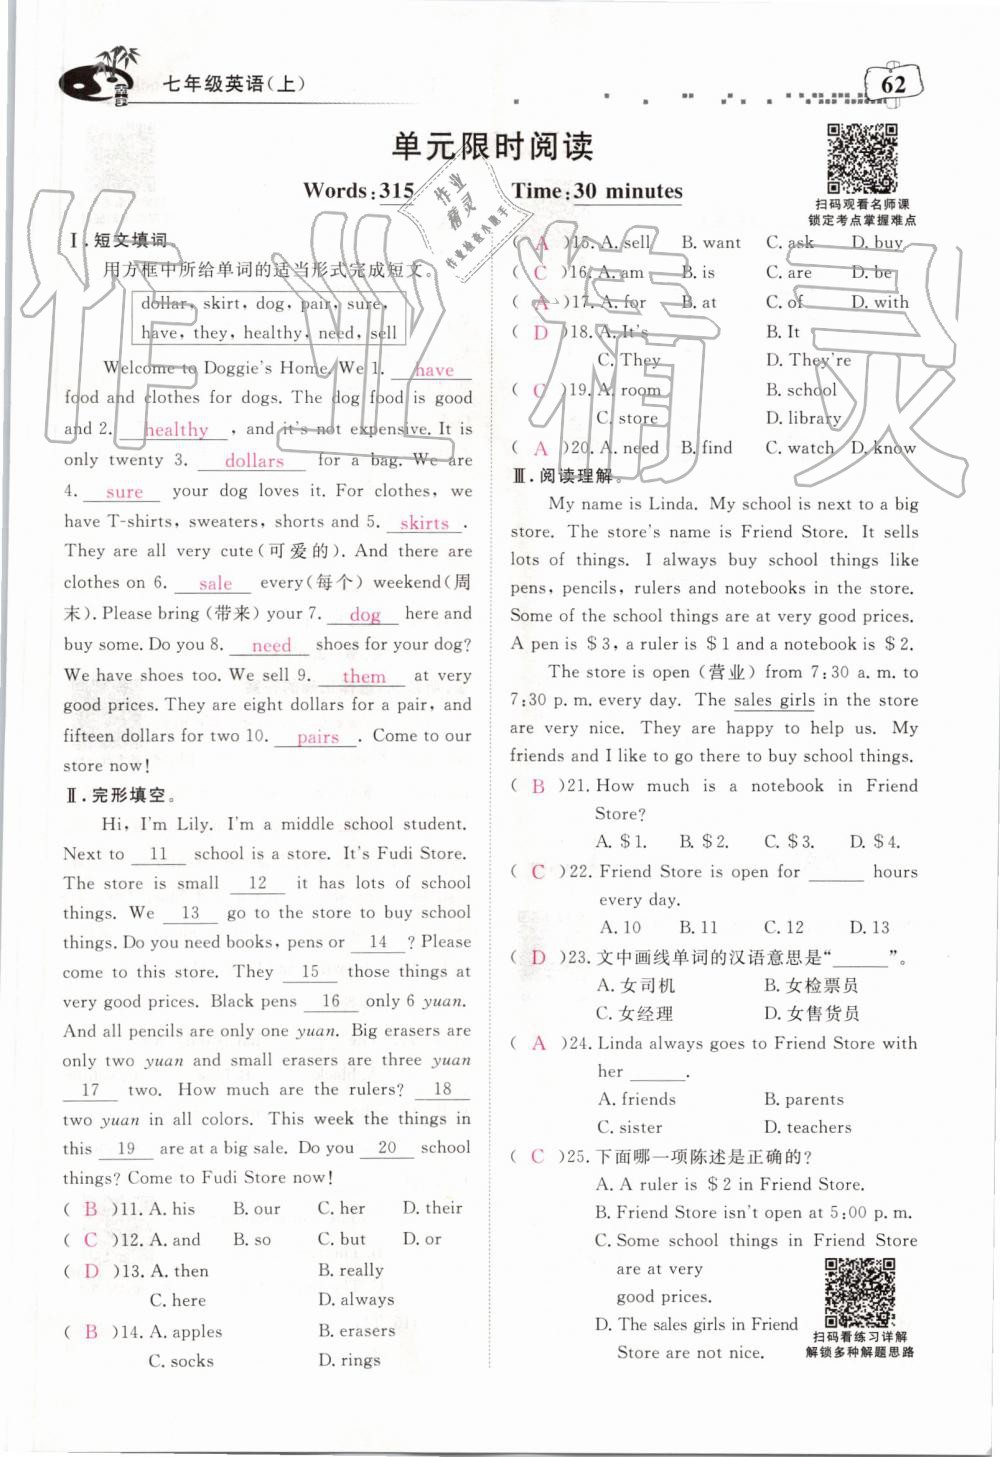 七年级英语(上)
62
单元限时阅读
Words:315 Time:30 minutes
扫码观看名师课
锁定考点掌握难点
Ⅰ.短文填词
用方框中所给单词的适当形式完成短文。
dollar, skirt, dog, pair, sure,
have, they, healthy, need, sell
Welcome to Doggie's Home. We 1. have
food and clothes for dogs. The dog food is good
and 2. healthy , and it's not expensive. It is
only twenty 3. dollars for a bag. We are
4. sure your dog loves it. For clothes, we
have T-shirts, sweaters, shorts and 5. skirts .
They are all very cute(可爱的). And there are
clothes on 6. sale every(每个) weekend(周
末). Please bring (带来) your 7. dog here and
buy some. Do you 8. need shoes for your dog?
We have shoes too. We sell 9. them at very
good prices. They are eight dollars for a pair, and
fifteen dollars for two 10. pairs . Come to our
store now!
Ⅱ.完形填空。
Hi, I'm Lily. I'm a middle school student.
Next to 11 school is a store. It's Fudi Store.
The store is small 12 it has lots of school
things. We 13 go to the store to buy school
things. Do you need books, pens or 14 ? Please
come to this store. They 15 those things at
very good prices. Black pens 16 only 6 yuan.
And all pencils are only one yuan. Big erasers are
only two yuan and small erasers are three yuan
17 two. How much are the rulers? 18
two yuan in all colors. This week the things in
this 19 are at a big sale. Do you 20 school
things? Come to Fudi Store now!
( B )11. A. his B. our C. her D. their
( C )12. A. and B. so C. but D. or
( D )13. A. then B. really
C. here D. always
( B )14. A. apples B. erasers
C. socks D. rings
( A )15. A. sell B. want C. ask D. buy
( C )16. A. am B. is C. are D. be
( A )17. A. for B. at C. of D. with
( D )18. A. It's B. It
C. They D. They're
( C )19. A. room B. school
C. store D. library
( A )20. A. need B. find C. watch D. know
Ⅲ.阅读理解。
My name is Linda. My school is next to a big
store. The store's name is Friend Store. It sells
lots of things. I always buy school things like
pens, pencils, rulers and notebooks in the store.
Some of the school things are at very good prices.
A pen is $3, a ruler is $1 and a notebook is $2.
The store is open (营业) from 7:30 a. m. to
7:30 p. m. every day. The sales girls in the store
are very nice. They are happy to help us. My
friends and I like to go there to buy school things.
( B )21. How much is a notebook in Friend
Store?
A. $1. B. $2. C. $3. D. $4.
( C )22. Friend Store is open for ______ hours
every day.
A. 10 B. 11 C. 12 D. 13
( D )23. 文中画线单词的汉语意思是“______”。
A. 女司机 B. 女检票员
C. 女经理 D. 女售货员
( A )24. Linda always goes to Friend Store with
her ______.
A. friends B. parents
C. sister D. teachers
( C )25. 下面哪一项陈述是正确的?
A. A ruler is $2 in Friend Store.
B. Friend Store isn't open at 5:00 p. m.
C. Some school things in Friend Store
are at very
good prices.
D. The sales girls in Friend
Store are not nice.
扫码看练习详解
解锁多种解题思路
作业精灵
作业精灵
作业检查小助手